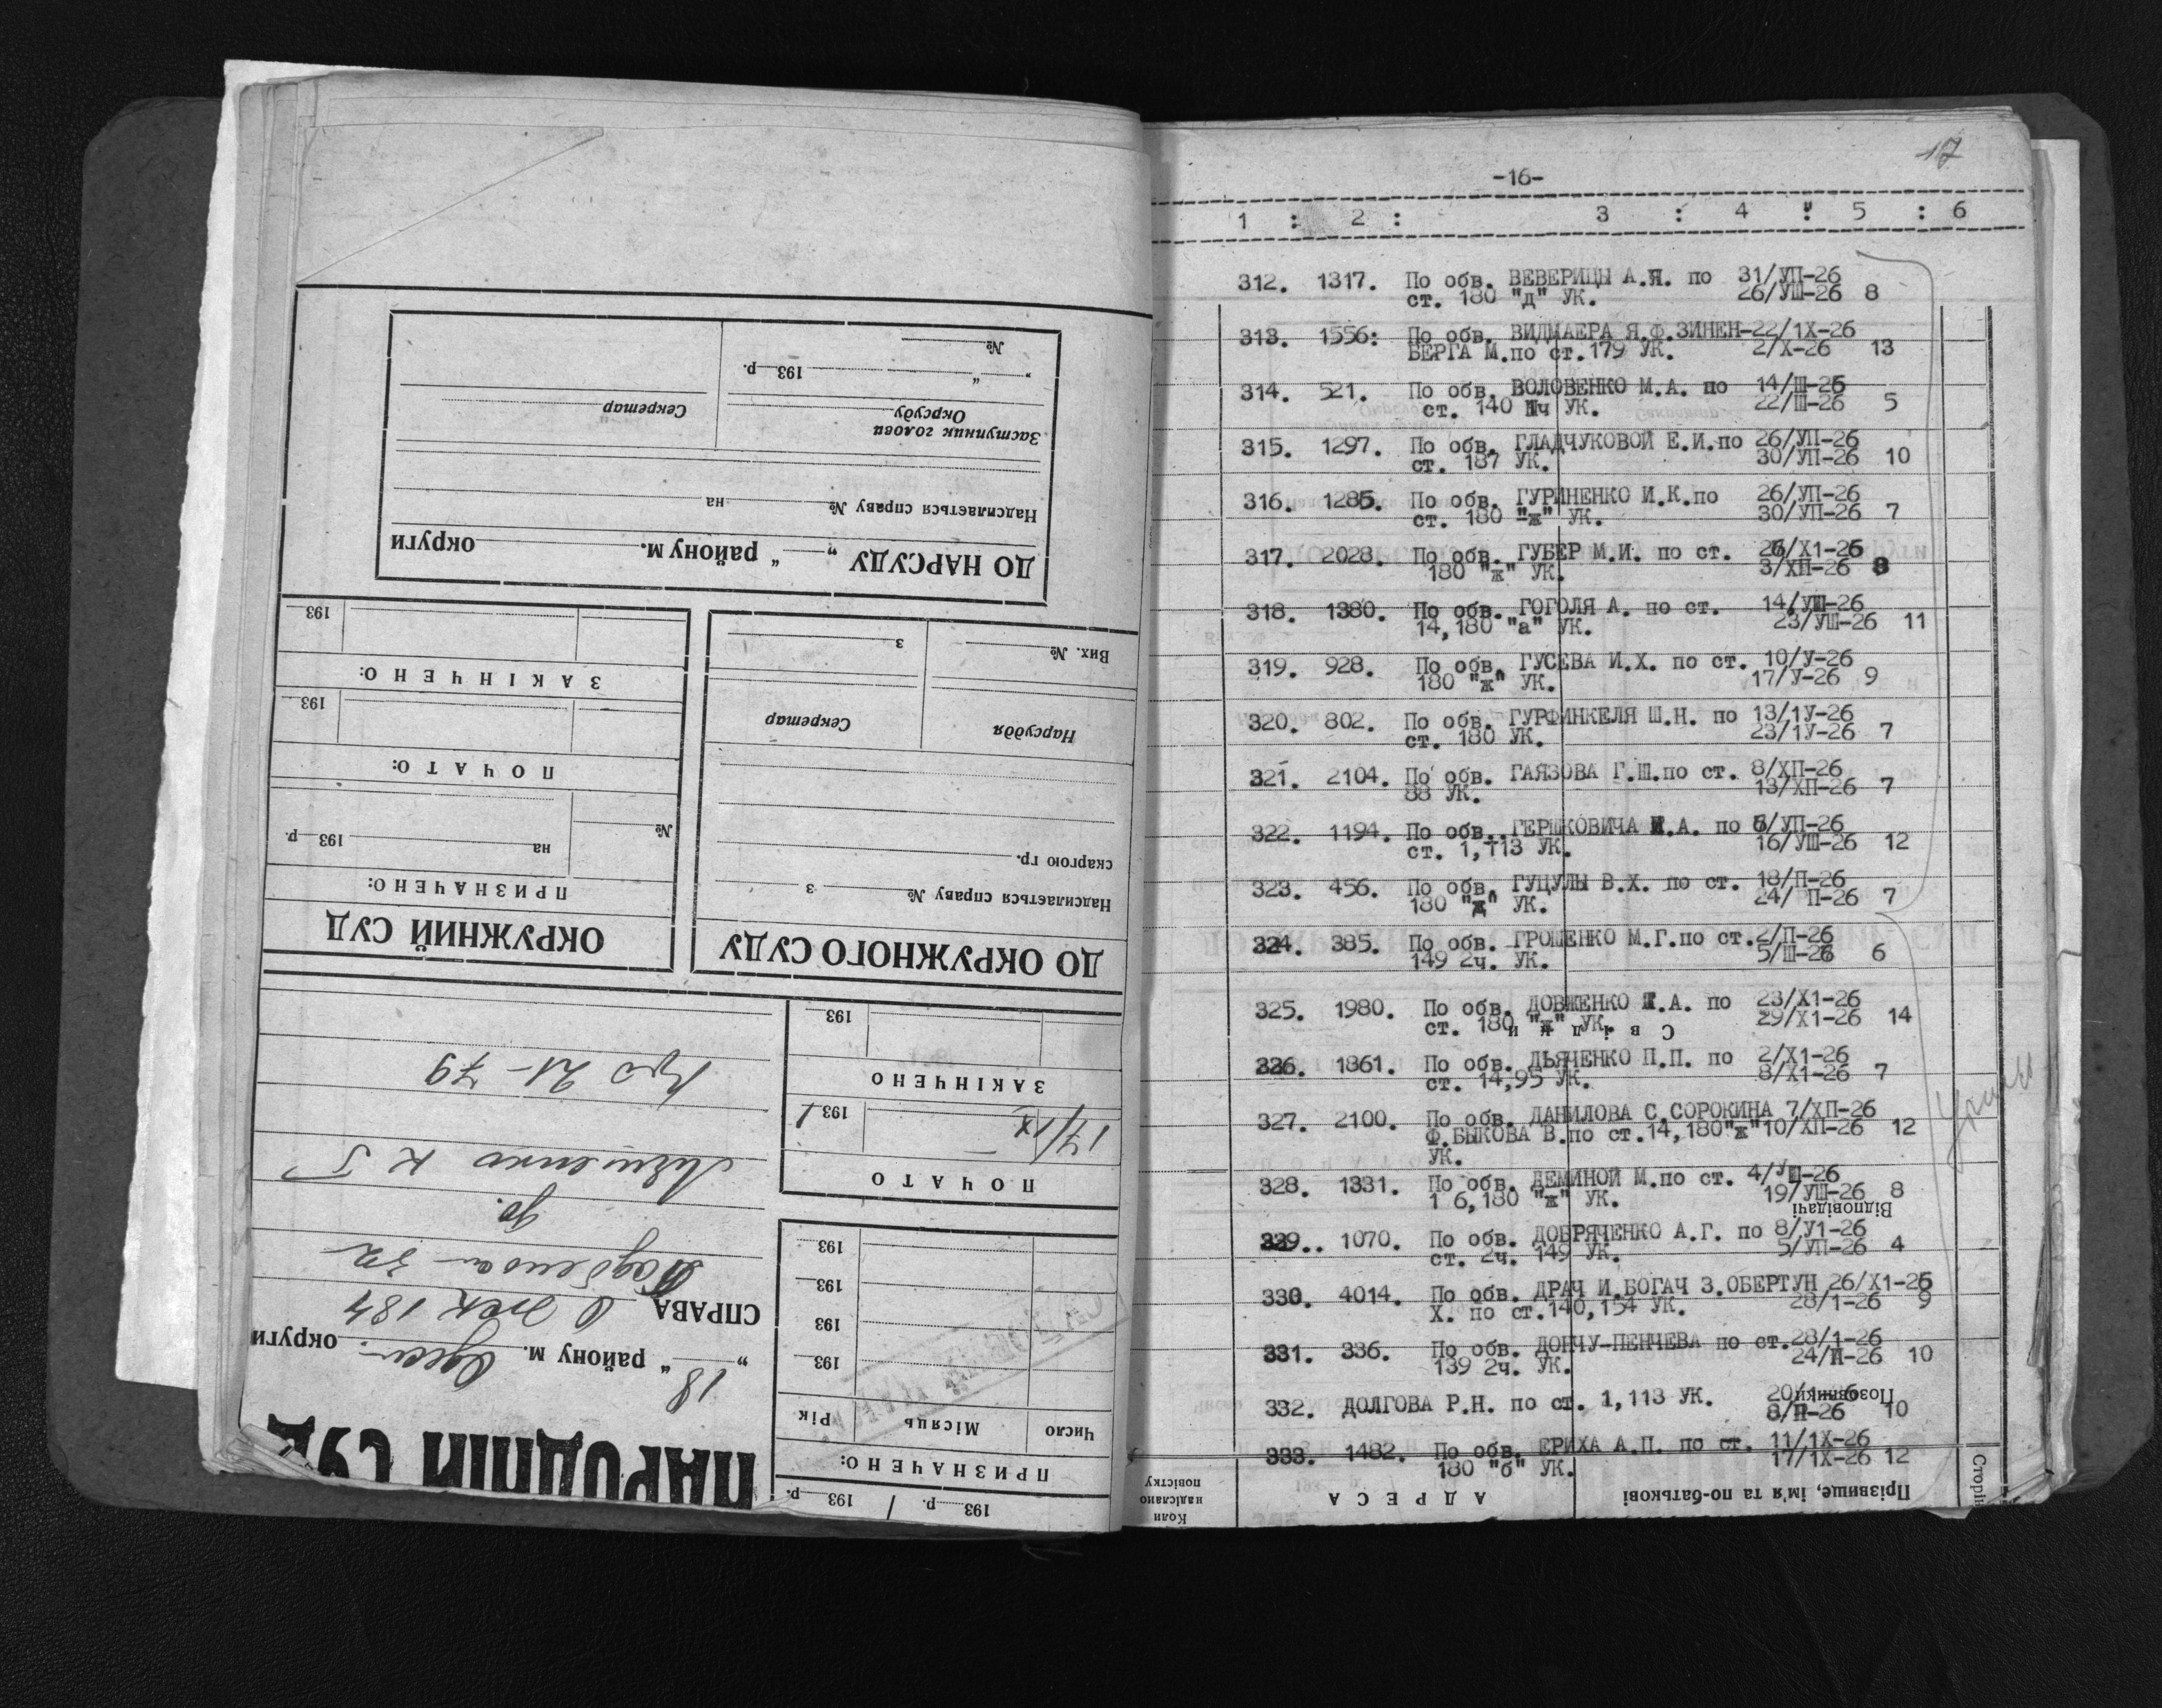 НАРОДНІЙ СУД
„ 18 “ району м. Одеси округи
СПРАВА
ПРИЗНАЧЕНО:
Число Місяць Рік
193
193
193
193
ПОЧАТО
17/IX 193 1
ЗАКІНЧЕНО
193
ОКРУЖНИЙ СУД
ПРИЗНАЧЕНО:
№ на 193 р.
ПОЧАТО:
193
ЗАКІНЧЕНО:
193
ДО ОКРУЖНОГО СУДУ
Надсилається справу № з
скаргою гр.
Нарсуддя Секретар
Вих. № з
ДО НАРСУДУ „ “ району м. округи
Надсилається справу № на
Заступник голови
Окрсуду Секретар
„ “ 193 р.
№
17
-16-
1 : 2 : 3 : 4 : 5 : 6
312. 1317. По обв. ВЕВЕРИЦЫ А.Я. по 31/УП-26
ст. 180 "д" УК. 26/УШ-26 8
313. 1556: По обв. ВИДМАЕРА Я.Ф.ЗИНЕН-22/1Х-26
БЕРГА М.по ст.179 УК. 2/Х-26 13
314. 521. По обв. ВОЛОВЕНКО М.А. по 14/Ш-26
ст. 140 1ч УК. 22/Ш-26 5
315. 1297. По обв. ГЛАДЧУКОВОЙ Е.И.по 26/УП-26
ст. 187 УК. 30/УП-26 10
316. 1285. По обв. ГУРИНЕНКО И.К.по 26/УП-26
ст. 180 "ж" УК. 30/УП-26 7
317. 2028. По обв. ГУБЕР М.И. по ст. 26/Х1-26
180 "ж" УК. 3/ХП-26 8
318. 1380. По обв. ГОГОЛЯ А. по ст. 14/УШ-26
14,180 "а" УК. 23/УШ-26 11
319. 928. По обв. ГУСЕВА И.Х. по ст. 10/У-26
180 "ж" УК. 17/У-26 9
320. 802. По обв. ГУРФИНКЕЛЯ Ш.Н. по 13/1У-26
ст. 180 УК. 23/1У-26 7
321. 2104. По обв. ГАЯЗОВА Г.Ш.по ст. 8/ХП-26
88 УК. 13/ХП-26 7
322. 1194. По обв. ГЕРШКОВИЧА И.А. по 6/УП-26
ст. 1,113 УК. 16/УШ-26 12
323. 456. По обв. ГУЦУЛЫ В.Х. по ст. 18/П-26
180 "д" УК. 24/ П-26 7
324. 385. По обв. ГРОШЕНКО М.Г.по ст.2/П-26
149 2ч. УК. 5/Ш-26 6
325. 1980. По обв. ДОВЖЕНКО Т.А. по 23/Х1-26
ст. 180 "ж" УК. 29/Х1-26 14
Свідки
326. 1861. По обв. ДЬЯЧЕНКО П.П. по 2/Х1-26
ст. 14,95 УК. 8/Х1-26 7
327. 2100. По обв. ДАНИЛОВА С.СОРОКИНА 7/ХП-26
Ф.БЫКОВА В.по ст.14,180"ж"10/ХП-26 12
УК.
328. 1331. По обв. ДЕМИНОЙ М.по ст. 4/УШ-26
1 6,180 "ж" УК. 19/УШ-26 8
Відповідачі
329.. 1070. По обв. ДОБРЯЧЕНКО А.Г. по 8/У1-26
ст. 2ч. 149 УК. 5/УП-26 4
330. 4014. По обв. ДРАЧ И.БОГАЧ З.ОБЕРТУН 26/Х1-25
Х. по ст.140,154 УК. 28/1-26 9
331. 336. По обв. ДОНЧУ-ПЕНЧЕВА по ст.28/1-26
139 2ч. УК. 24/П-26 10
Позовники
332. ДОЛГОВА Р.Н. по ст. 1,113 УК.
8/П-26 10
333. 1482. По обв. ЕРИХА А.П. по ст. 11/1Х-26
180 "б" УК. 17/1Х-26 12
Прізвище, ім'я та по-батькові АДРЕСА Коли надіслано повістку